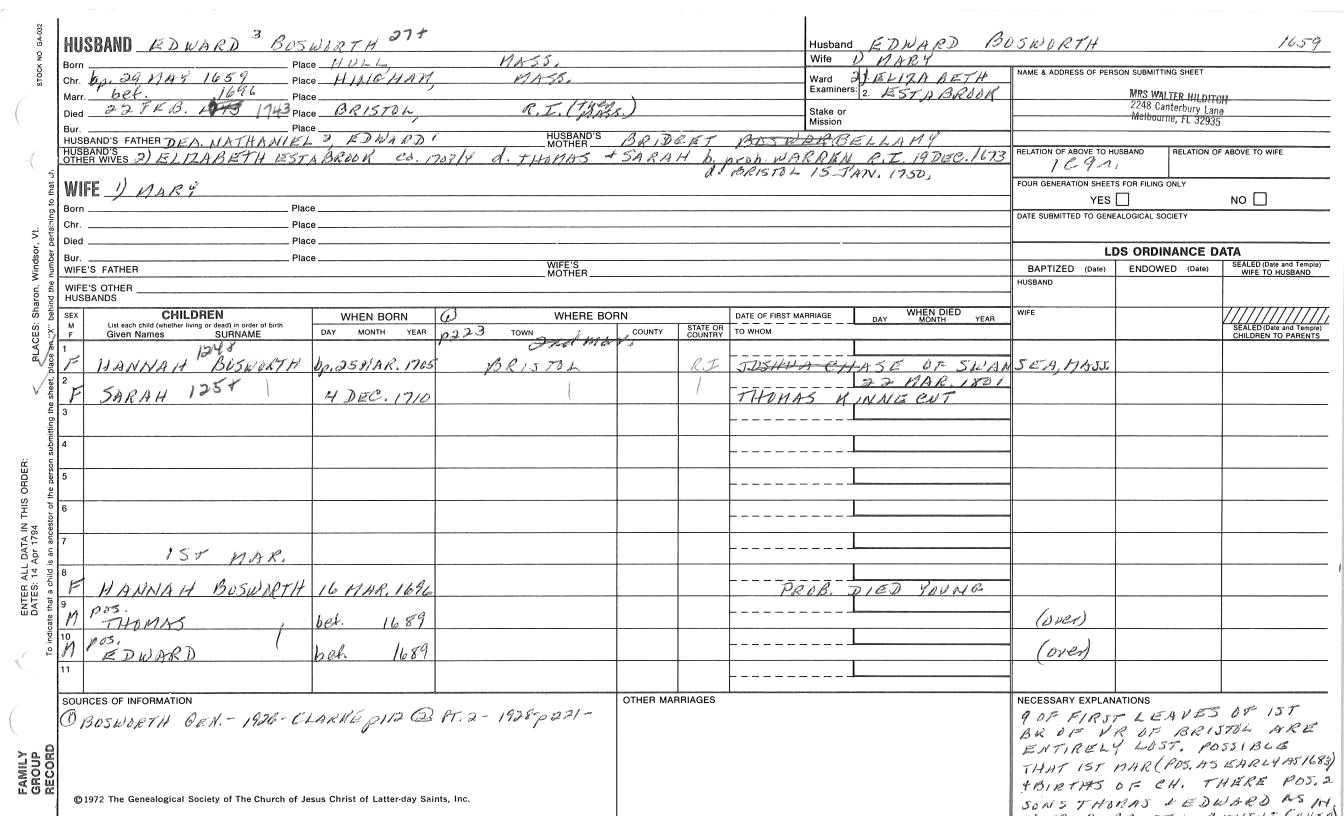 STOCK NO GA-032
HUSBAND EDWARD 3 BOSWORTH 27+
Husband EDWARD BOSWORTH 1659
Wife 1) MARY
Born Place HULL, MASS.
Chr. bp. 29 MAY 1659 Place HINGHAM, MASS.
Ward 2) ELIZABETH
Examiners: 2. ESTABROOK
Marr. bet. 1696 Place
Died 22 FEB. 1743 Place BRISTOL, R.I. (THEN MASS.)
Stake or
Mission
Bur. Place
NAME & ADDRESS OF PERSON SUBMITTING SHEET
MRS WALTER HILDITCH
2248 Canterbury Lane
Melbourne, FL 32935
HUSBAND'S FATHER DEA. NATHANIEL 2, EDWARD 1 HUSBAND'S MOTHER BRIDGET BELLAMY
HUSBAND'S OTHER WIVES 2) ELIZABETH ESTABROOK co. 1707/4 d. THOMAS + SARAH b. prob WARREN R.I. 19 DEC. 1673
d. BRISTOL 15 JAN. 1750,
RELATION OF ABOVE TO HUSBAND RELATION OF ABOVE TO WIFE
WIFE 1) MARY
FOUR GENERATION SHEETS FOR FILING ONLY
YES NO
Born Place
Chr. Place
DATE SUBMITTED TO GENEALOGICAL SOCIETY
Died Place
Bur. Place
LDS ORDINANCE DATA
WIFE'S FATHER WIFE'S MOTHER
BAPTIZED (Date) ENDOWED (Date) SEALED (Date and Temple) WIFE TO HUSBAND
WIFE'S OTHER HUSBANDS
HUSBAND
SEX M F
CHILDREN
List each child (whether living or dead) in order of birth
Given Names SURNAME
WHEN BORN
DAY MONTH YEAR
① p223
WHERE BORN
TOWN COUNTY STATE OR COUNTRY
2nd mar.
DATE OF FIRST MARRIAGE
TO WHOM
WHEN DIED
DAY MONTH YEAR
WIFE
SEALED (Date and Temple)
CHILDREN TO PARENTS
1 F HANNAH 1248 BOSWORTH bp. 25 MAR. 1705 BRISTOL R.I JOSHUA CHASE OF SWANSEA, MASS.
22 MAR. 1801
2 F SARAH 125+ 4 DEC. 1710 THOMAS KINNECUT
3
4
5
6
7 1ST MAR.
8 F HANNAH BOSWORTH 16 MAR. 1696 PROB. DIED YOUNG
9 M pos. THOMAS bet. 1689 (over)
10 M pos. EDWARD bet. 1689 (over)
11
SOURCES OF INFORMATION
① BOSWORTH GEN. - 1926 - CLARKE p112 ② PT. 2 - 1928 - p221 -
OTHER MARRIAGES
NECESSARY EXPLANATIONS
9 OF FIRST LEAVES OF 1ST
BK OF VR OF BRISTOL ARE
ENTIRELY LOST. POSSIBLE
THAT 1ST MAR (POS. AS EARLY AS 1683)
+ BIRTHS OF CH. THERE POS. 2
SONS THOMAS & EDWARD AS IN
©1972 The Genealogical Society of The Church of Jesus Christ of Latter-day Saints, Inc.
FAMILY
GROUP
RECORD
ENTER ALL DATA IN THIS ORDER:
DATES: 14 Apr 1794
PLACES: Sharon, Windsor, Vt.
To indicate that a child is an ancestor of the person submitting the sheet, place an "X" behind the number pertaining to that